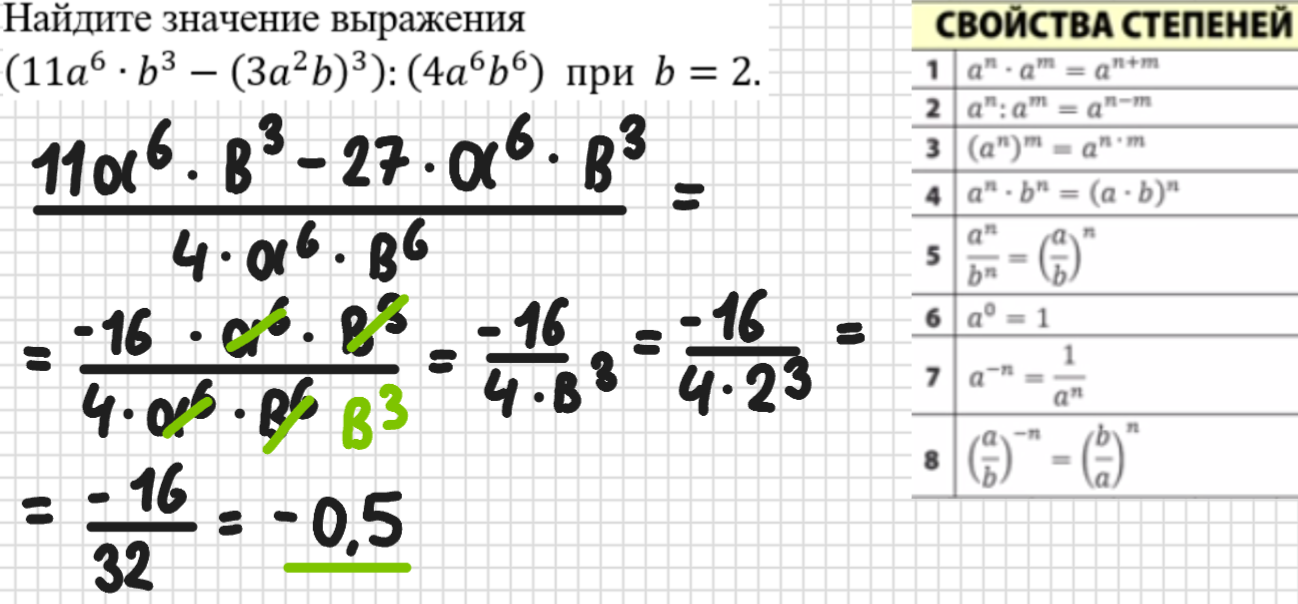 Найдите значение выражения
(11a⁶ · b³ − (3a²b)³) : (4a⁶b⁶) при b = 2.
11a⁶ · b³ − 27 · a⁶ · b³
=
4 · a⁶ · b⁶
= -16 · a⁶ · b³ / 4 · a⁶ · b⁶ b³ = -16 / 4 · b³ = -16 / 4 · 2³ =
= -16 / 32 = -0,5
СВОЙСТВА СТЕПЕНЕЙ
1 aⁿ · aᵐ = aⁿ⁺ᵐ
2 aⁿ : aᵐ = aⁿ⁻ᵐ
3 (aⁿ)ᵐ = aⁿ·ᵐ
4 aⁿ · bⁿ = (a · b)ⁿ
5 aⁿ/bⁿ = (a/b)ⁿ
6 a⁰ = 1
7 a⁻ⁿ = 1/aⁿ
8 (a/b)⁻ⁿ = (b/a)ⁿ